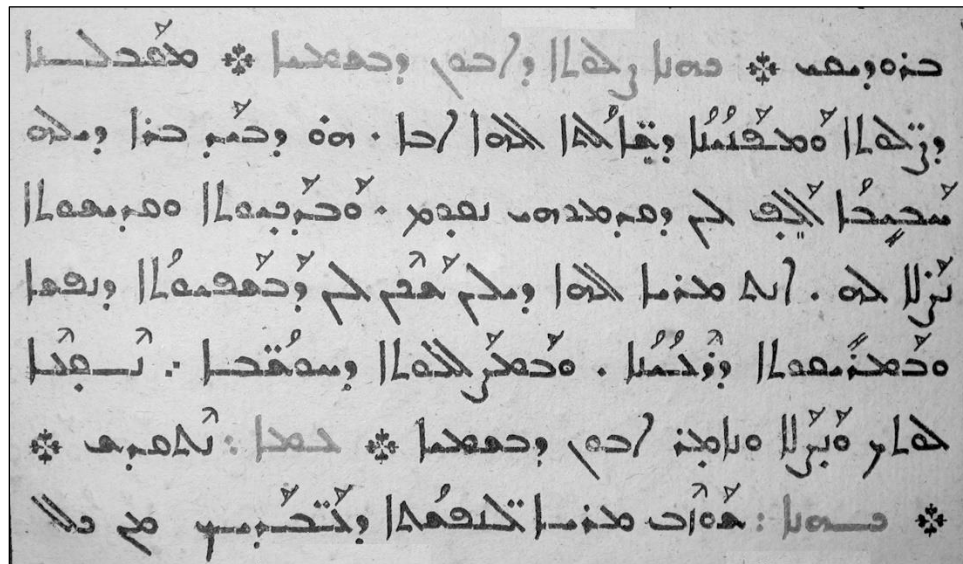 ܒܪܘܕܝܩܝ ❊ ܟܗܢܐ ܨܠܘܬܐ ܕܐܒܘܢ ܕܒܫܡܝܐ ❊ ܡܩܒܠܢܐ
ܕܨ̈ܠܘܬܐ ܘܡܦܢܝܢܐ ܕܫܐ̈ܠܬܐ ܐܠܗܐ ܐܒܐ . ܗܘ ܕܒܝܕ ܒܪܐ ܕܝܠܗ
ܚܒܝܒܐ ܐܠܦ ܠܢ ܕܩܕܡܘܗܝ ܢܩܘܡ . ܘܒܕܟܝܘܬܐ ܘܩܕܝܫܘܬܐ
ܢܨܠܐ ܠܗ . ܐܢܬ ܡܪܝܐ ܐܠܗܐ ܕܝܠܢ ܫܟܢ ܠܢ ܕܒܫܦܝܘܬܐ ܕܢܦܫܐ
ܘܒܡܪܝܩܘܬܐ ܕܪܥܝܢܐ . ܘܒܡܨܠܠܘܬܐ ܕܚܘܫ̈ܒܐ .
ܠܘܬܟ ܘܢܨܠܐ ܘܢܐܡܪ ܐܒܘܢ ܕܒܫܡܝܐ ❊ ܥܡܐ : ܢܬܩܕܫ ❊
❊ ܟܗܢܐ : ܫܘܙܒ ܡܪܝܐ ܠܢܦܫ̈ܬܐ ܕܥܒ̈ܕܝܟ ܡܢ ܟܠ